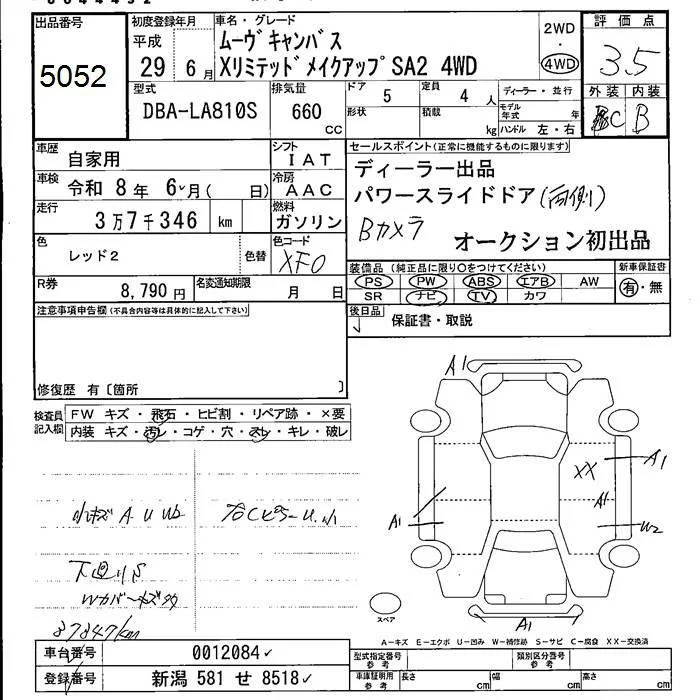 出品番号
5052
初度登録年月
平成
29 6月
車名・グレード
ムーヴキャンバス
Xリミテッドメイクアップ SA2 4WD
2WD
・
4WD
評価点
3.5
外装 内装
C B
型式
DBA-LA810S
排気量
660
cc
ドア
5
定員
4 人
形状
積載
kg
ディーラー・並行
モデル年式 年
ハンドル 左・右
車歴
自家用
シフト
IAT
車検
令和 8年 6月( 日)
冷房
AAC
走行
3万7千346 km
燃料
ガソリン
色
レッド2
色替
色コード
XF0
R券
8,790 円
名変通知期限
月 日
セールスポイント(正常に機能するものに限ります)
ディーラー出品
パワースライドドア(両側)
Bカメラ
オークション初出品
装備品 (純正品に限り○をつけてください)
PS PW ABS エアB AW
SR ナビ TV カワ
新車保証書
有・無
後日品
保証書・取説
注意事項申告欄(不具合内容等は具体的に記入して下さい)
修復歴 有〔箇所 〕
検査員記入欄
FW キズ・飛石・ヒビ割・リペア跡・×要
内装 キズ・汚レ・コゲ・穴・スレ・キレ・破レ
小キズ A U W2
右Cピラー U小
下廻りS
Wカバーキズ
37847km
A1
A1
XX
A1
A1
W2
A1
スペア
A-キズ E-エクボ U-凹み W-補修跡 S-サビ C-腐食 XX-交換済
車台番号
0012084✓
登録番号
新潟 581 せ 8518✓
型式指定番号
参考
類別区分番号
参考
車庫証明用
参考
長さ cm
幅 cm
高さ cm